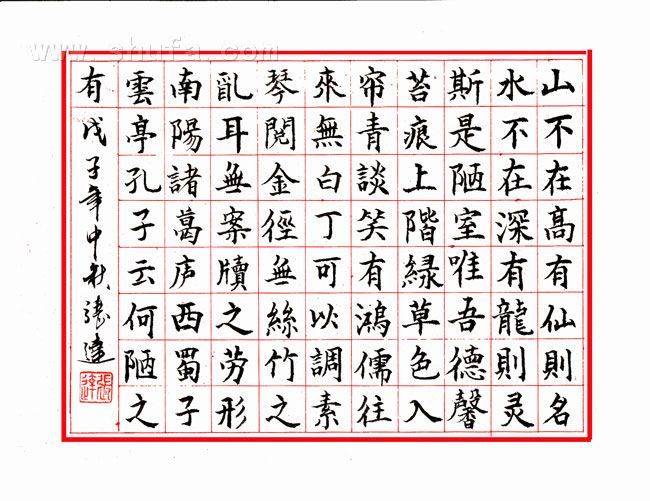 www.shufa.com
山不在高有仙則名
水不在深有龍則灵
斯是陋室唯吾德馨
苔痕上階緑草色入
帘青談笑有鴻儒往
來無白丁可以調素
琴閲金徑無絲竹之
亂耳無案牘之劳形
南陽諸葛庐西蜀子
雲亭孔子云何陋之
有 戊子年中秋張達
張達